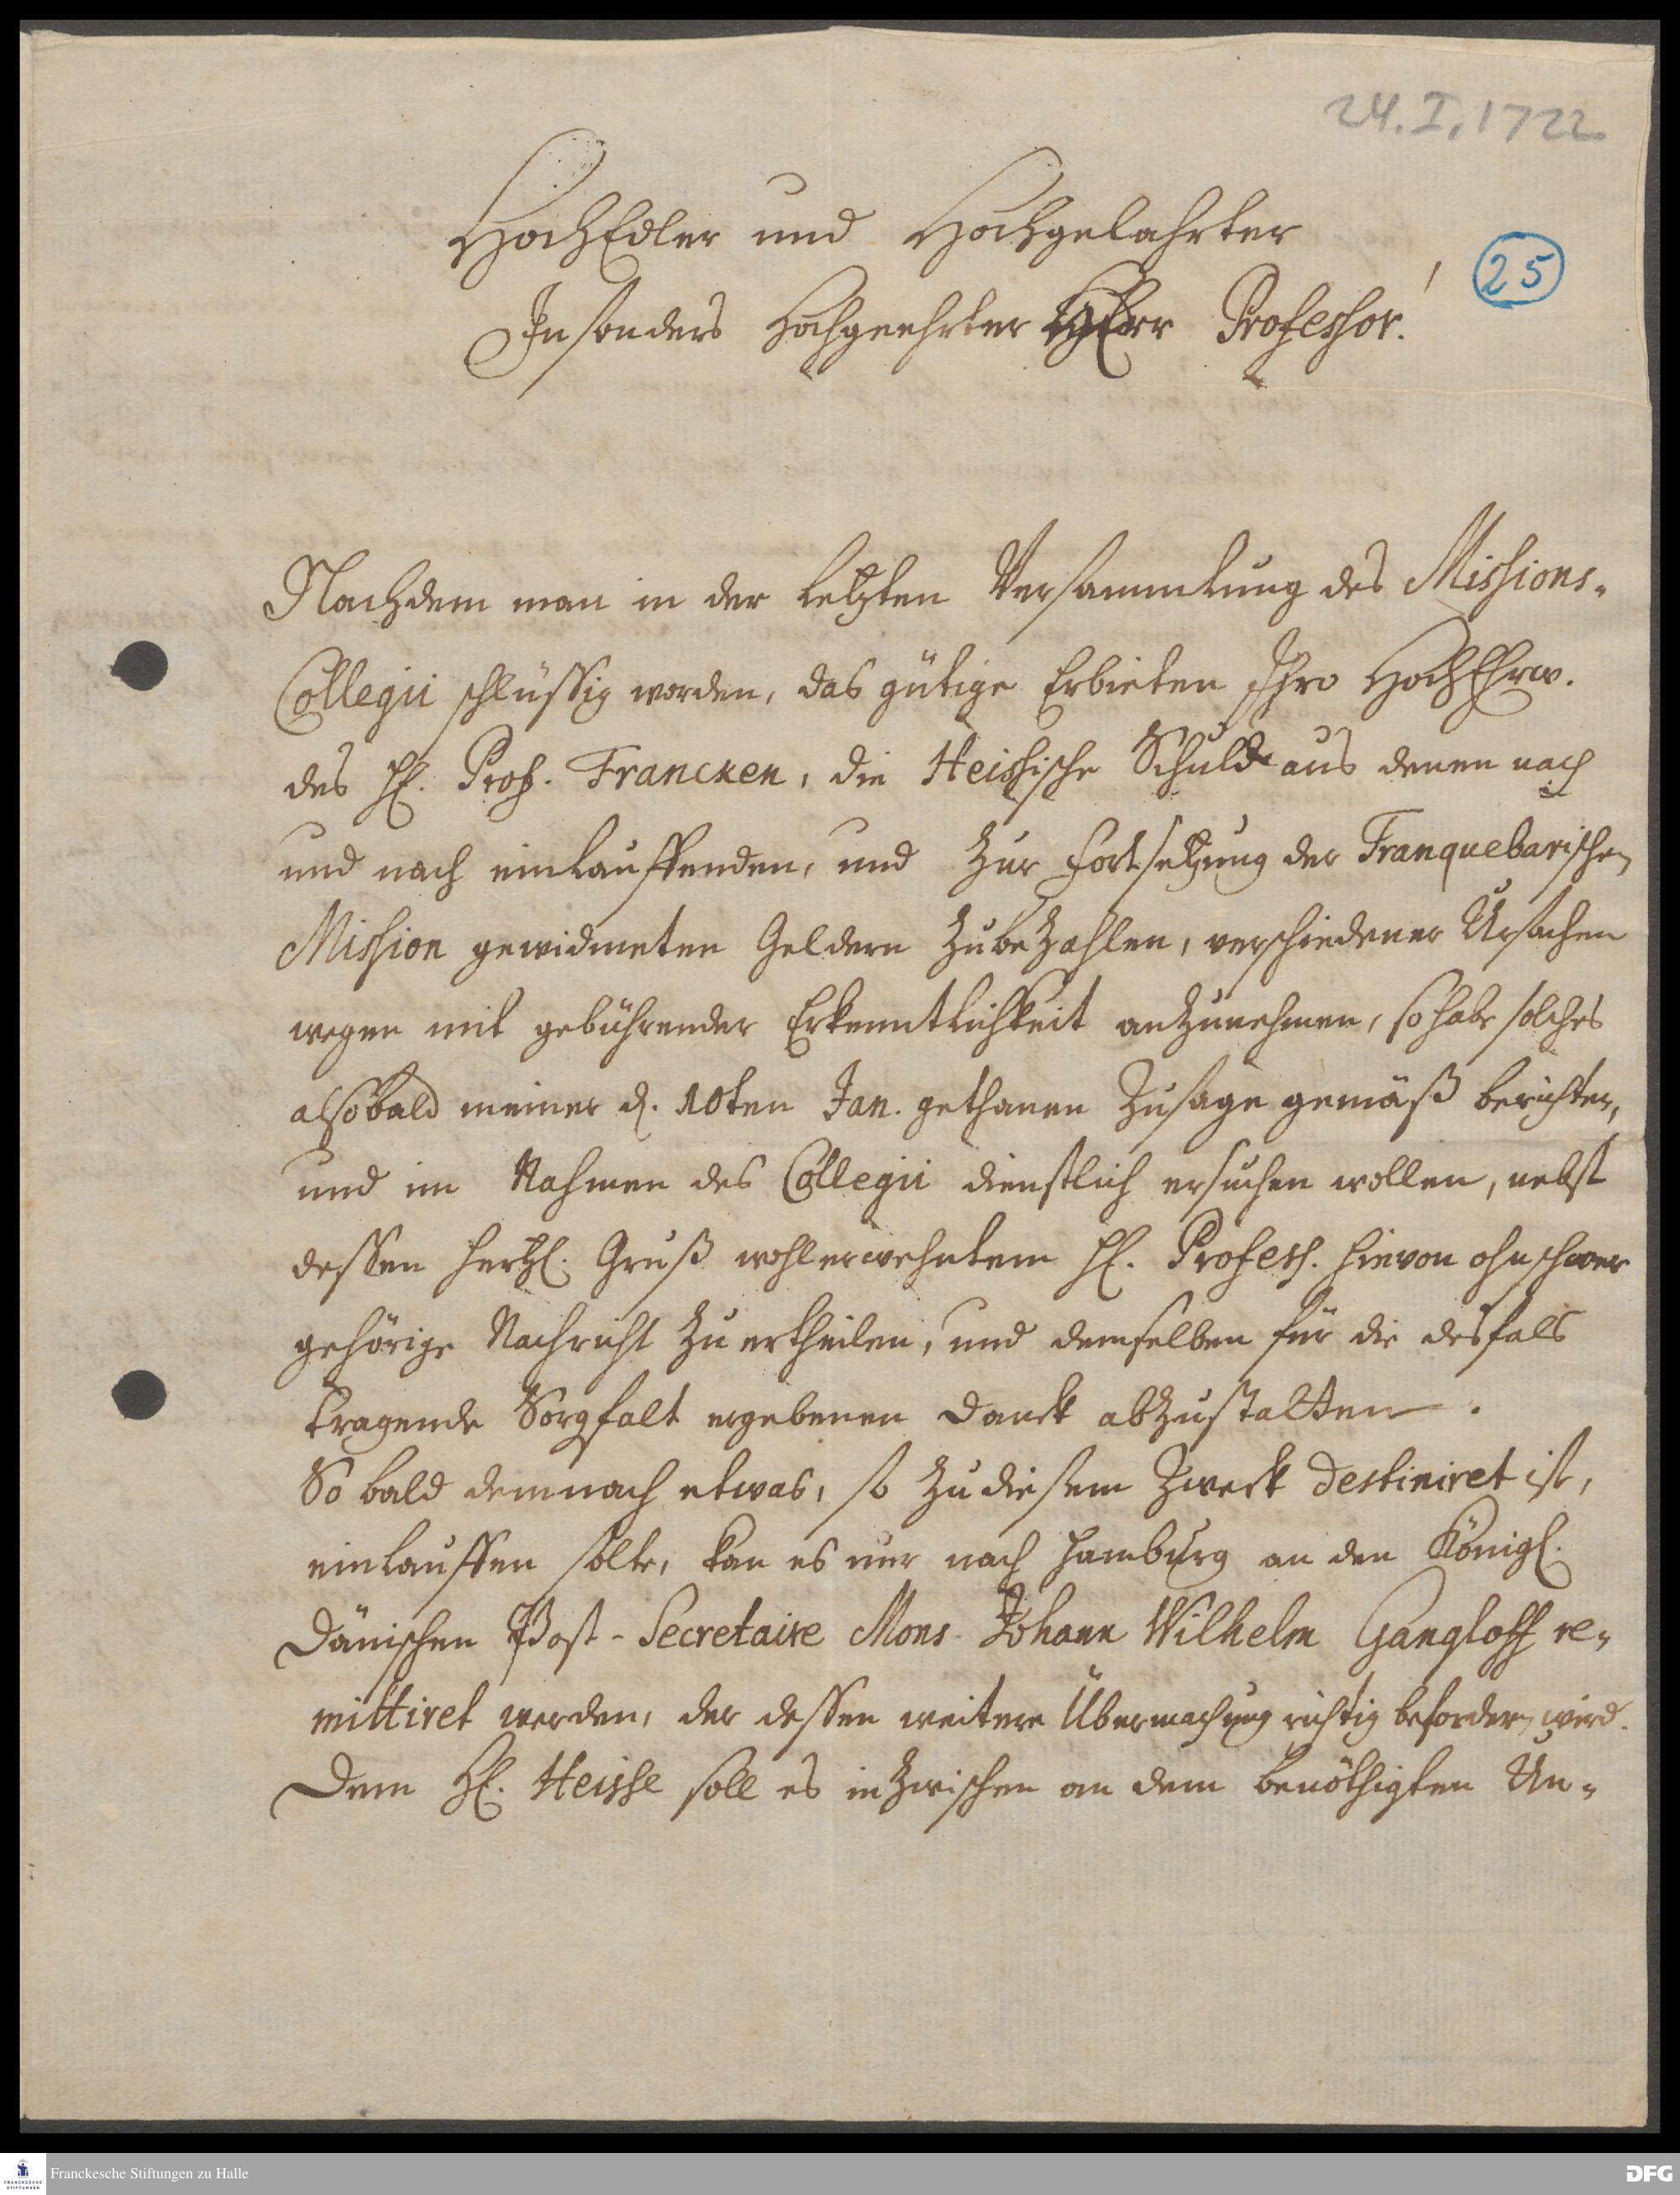 24. I. 1722
HochEdler und Hochgelahrter
25
Insonders Hochgeehrter HErr Professor!
Nachdem man in der letzten Versammlung des Missions-
Collegii schlüssig worden, das gütige Erbieten Ihro HochEhrw.
des H. Prof. Francken, die Heissische Schuld aus denen nach
und nach einlauffenden, und zur Fortsetzung der Tranquebarischen
Mission gewidmeten Geldern zubezahlen, verschiedener Ursachen
wegen mit gebührender Erkenntlichkeit anzunehmen, so habe solches
alsobald meiner d. 10ten Jan. gethanen Zusage gemäß berichten,
und im Nahmen des Collegii dienstlich ersuchen wollen, nebst
dessen hertzl. Gruß wohlerwehntem H. Profess. hievon ohnschwer
gehörige Nachricht zu ertheilen, und demselben für die desfals
tragende Sorgfalt ergebenen Danck abzustatten.
So bald demnach etwas, so zu diesem Zweck destiniret ist,
einlauffen solte, kan es nur nach Hamburg an den Königl.
Dänischen Post-Secretaire Mons. Johann Wilhelm Gangloff re-
mittiret werden, der dessen weitere Übermachung richtig befordern wird.
Dem H. Heisse soll es inzwischen an dem benöthigten Un-
Franckesche Stiftungen zu Halle
DFG